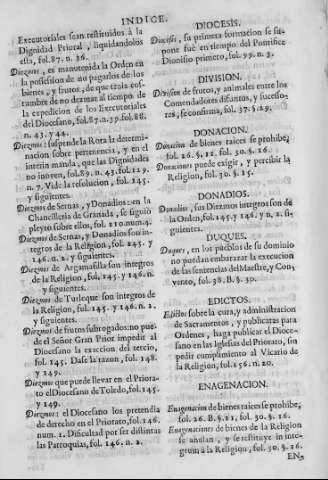 INDICE.
Executoriales sean restituidos à la
Dignidad Prioral, liquidandolos
ella, fol. 87. n. 36.
Diezmos, es manutenida la Orden en
la possesion de no pagarlos de los
bienes, y frutos, de que traìa cos-
tumbre de no dezmar al tiempo de
la expedicion de los Executoriales
del Diocesano, fol. 87. n. 39. fol. 88.
n. 43. y 44.
Diezmos: suspende la Rota la determi-
nacion sobre pertenencia, y en el
interin manda, que las Dignidades
no innoven, fol. 89. n. 43. fol. 129.
n. 7. Vide la resolucion, fol. 145.
y siguientes.
Diezmos de Sernas, y Donadios: en la
Chancilleria de Granada, se siguiò
pleyto sobre ellos, fol. 110. num. 4.
Diezmos de Sernas, y Donadios son in-
tegros de la Religion, fol. 245. y
146. n. 2. y siguientes.
Diezmos de Argamasilla son integros
de la Religion, fol. 145. y 146. n.
y siguientes.
Diezmos de Turleque son integros de
la Religion, fol. 145. y 146. n. 2.
y siguientes.
Diezmos de frutos subrogados: no pue-
de el Señor Gran Prior impedir al
Diocesano la exaccion del tercio,
fol. 145. Dase la razon, fol. 148.
y 149.
Diezmos que puede llevar en el Priora-
to el Diocesano de Toledo, fol. 145.
y 149.
Diezmos: el Diocesano los pretendia
de derecho en el Priorato, fol. 146.
num. 1. Dificultad por ser distintas
las Parroquias, fol. 146. n. 2.
DIOCESIS.
Diocesis, su primera formacion se su-
pone fuè en tiempo del Pontifice
Dionisio primero, fol. 99. n. 3.
DIVISION.
Division de frutos, y animales entre los
Comendadores difuntos, y sucesso-
res, se confirma, fol. 37. §. 29.
DONACION.
Donacion de bienes raices se prohibe,
fol. 26. §. 12. fol. 30. §. 16.
Donaciones puede exigir, y percibir la
Religion, fol. 30. §. 15.
DONADIOS.
Donadios, sus Diezmos integros son de
la Orden, fol. 145. y 146. y n. 2. si-
guientes.
DUQUES.
Duques, en los pueblos de su dominio
no puedan embarazar la execucion
de las sentencias del Maestre, y Con-
vento, fol. 38. §. 30.
EDICTOS.
Edictos sobre la cura, y administracion
de Sacramentos, y publicatas para
Ordenes, haga publicar el Dioce-
sano en las Iglesias del Priorato, sin
pedir cumplimiento al Vicario de
la Religion, fol. 156. n. 20.
ENAGENACION.
Enagenacion de bienes raices se prohibe,
fol. 26. §. 12. fol. 30. §. 16.
Enagenaciones de bienes de la Religion
se anulan, y se restituye in inte-
grum à la Religion, fol. 30. §. 16.
EN-